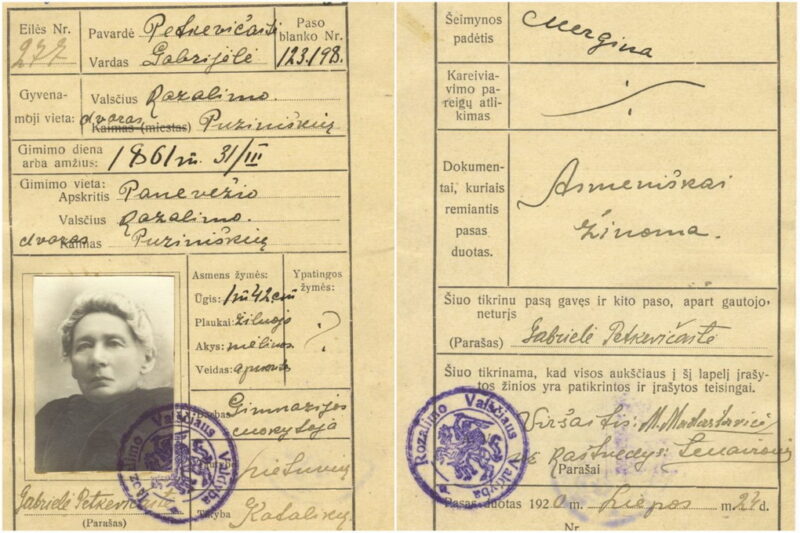 Eilės Nr.
277
Pavardė Petkevičaitė
Vardas Gabrijėlė
Paso
blanko Nr.
123198.
Gyvena-
moji vieta:
Valsčius Razalimo.
dvaras Kaimas (miestas) Puziniškių
Gimimo diena
arba amžius: 1861 m. 31/III
Gimimo vieta:
Apskritis Panevėžio
Valsčius Razalimo.
dvaras Kaimas Puziniškių
Asmens žymės:
Ūgis: 1 m 42 cm
Plaukai: žiluoja
Akys: mėlinos
Veidas:
Ypatingos
žymės:
?
Darbas Gimnazijos
mokytoja
Lietuvių
Tikyba Katalikų
Gabrielė Petkevičaitė
(Parašas)
Rozalimo Valsčiaus Valdyba
Šeimynos
padėtis
Mergina
Kareivia-
vimo pa-
reigų atli-
kimas
Dokumen-
tai, kuriais
remiantis
pasas
duotas.
Asmeniškai
žinoma.
Šiuo tikrinu pasą gavęs ir kito paso, apart gautojo,
neturįs
(Parašas) Gabrielė Petkevičaitė
Šiuo tikrinama, kad visos aukščiaus į šį lapelį įrašy-
tos žinios yra patikrintos ir įrašytos teisingai.
Viršaitis: M.
Raštvedys:
Parašai
Rozalimo Valsčiaus Valdyba
Pasas duotas 1920 m. Liepos m. 24 d.
Nr.